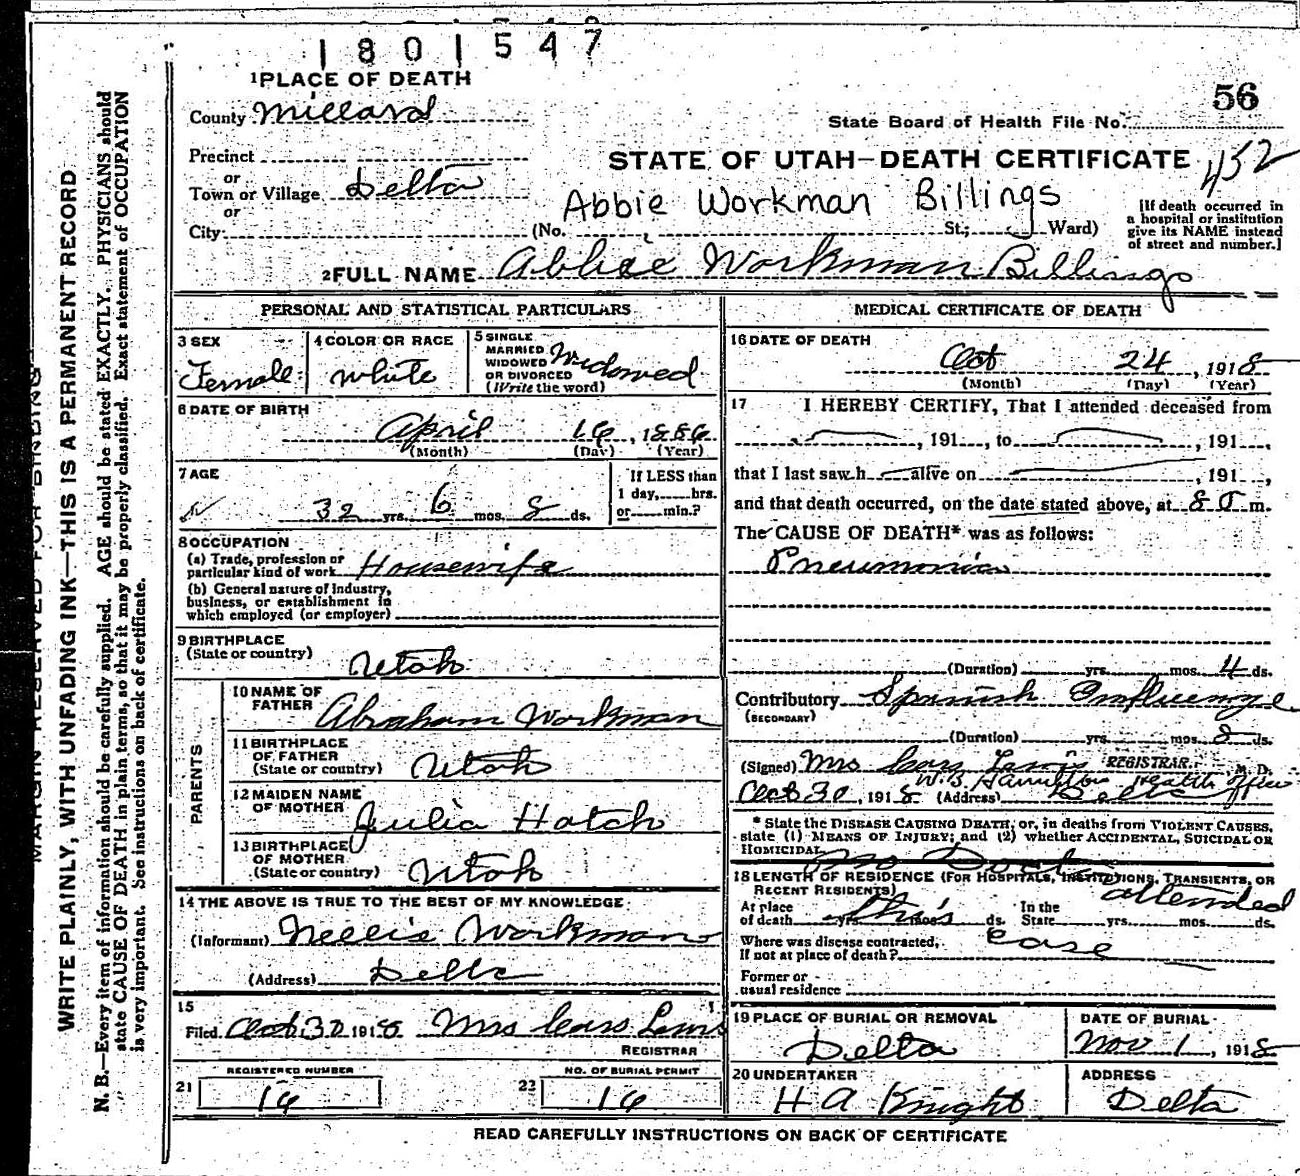 1801547
1 PLACE OF DEATH
56
County Millard
State Board of Health File No.
Precinct
STATE OF UTAH—DEATH CERTIFICATE 452
or
Town or Village Delta
or
Abbie Workman Billings
City (No. St.; Ward)
[If death occurred in
a hospital or institution
give its NAME instead
of street and number.]
2 FULL NAME Abbie Workman Billings
PERSONAL AND STATISTICAL PARTICULARS
3 SEX
Female
4 COLOR OR RACE
White
5 SINGLE
MARRIED
WIDOWED
OR DIVORCED
(Write the word)
Widowed
6 DATE OF BIRTH
April 16, 1886
(Month) (Day) (Year)
7 AGE
32 yrs. 6 mos. 8 ds.
If LESS than
1 day, hrs.
or min.?
8 OCCUPATION
(a) Trade, profession or
particular kind of work Housewife
(b) General nature of industry,
business, or establishment in
which employed (or employer)
9 BIRTHPLACE
(State or country)
Utah
PARENTS
10 NAME OF
FATHER Abraham Workman
11 BIRTHPLACE
OF FATHER
(State or country) Utah
12 MAIDEN NAME
OF MOTHER
Julia Hatch
13 BIRTHPLACE
OF MOTHER
(State or country) Utah
14 THE ABOVE IS TRUE TO THE BEST OF MY KNOWLEDGE
(Informant) Nellie Workman
(Address) Delta
15
Filed Oct 30 1918 Mrs Lewis
REGISTRAR
REGISTERED NUMBER
21 16
NO. OF BURIAL PERMIT
22 16
MEDICAL CERTIFICATE OF DEATH
16 DATE OF DEATH
Oct 24, 1918
(Month) (Day) (Year)
17 I HEREBY CERTIFY, That I attended deceased from
, 191 , to , 191 ,
that I last saw h alive on , 191 ,
and that death occurred, on the date stated above, at 8 m.
The CAUSE OF DEATH* was as follows:
Pneumonia
(Duration) yrs. mos. 4 ds.
Contributory Spanish Influenza
(SECONDARY)
(Duration) yrs. mos. 8 ds.
(Signed) Mrs Lewis REGISTRAR. M. D.
W. B. Hamilton Health Officer
Oct 30, 1918 (Address) Delta
* State the DISEASE CAUSING DEATH, or, in deaths from VIOLENT CAUSES,
state (1) MEANS OF INJURY; and (2) whether ACCIDENTAL, SUICIDAL OR
HOMICIDAL.
No Doctor
18 LENGTH OF RESIDENCE (FOR HOSPITALS, INSTITUTIONS, TRANSIENTS, OR
RECENT RESIDENTS)
attended
At place
of death yrs. mos. ds. In the
State yrs. mos. ds.
this
Where was disease contracted,
If not at place of death?
case
Former or
usual residence
19 PLACE OF BURIAL OR REMOVAL
Delta
DATE OF BURIAL
Nov 1, 1918
20 UNDERTAKER
H A Knight
ADDRESS
Delta
READ CAREFULLY INSTRUCTIONS ON BACK OF CERTIFICATE
MARGIN RESERVED FOR BINDING
WRITE PLAINLY, WITH UNFADING INK—THIS IS A PERMANENT RECORD
N. B.—Every item of information should be carefully supplied. AGE should be stated EXACTLY. PHYSICIANS should
state CAUSE OF DEATH in plain terms, so that it may be properly classified. Exact statement of OCCUPATION
is very important. See instructions on back of certificate.